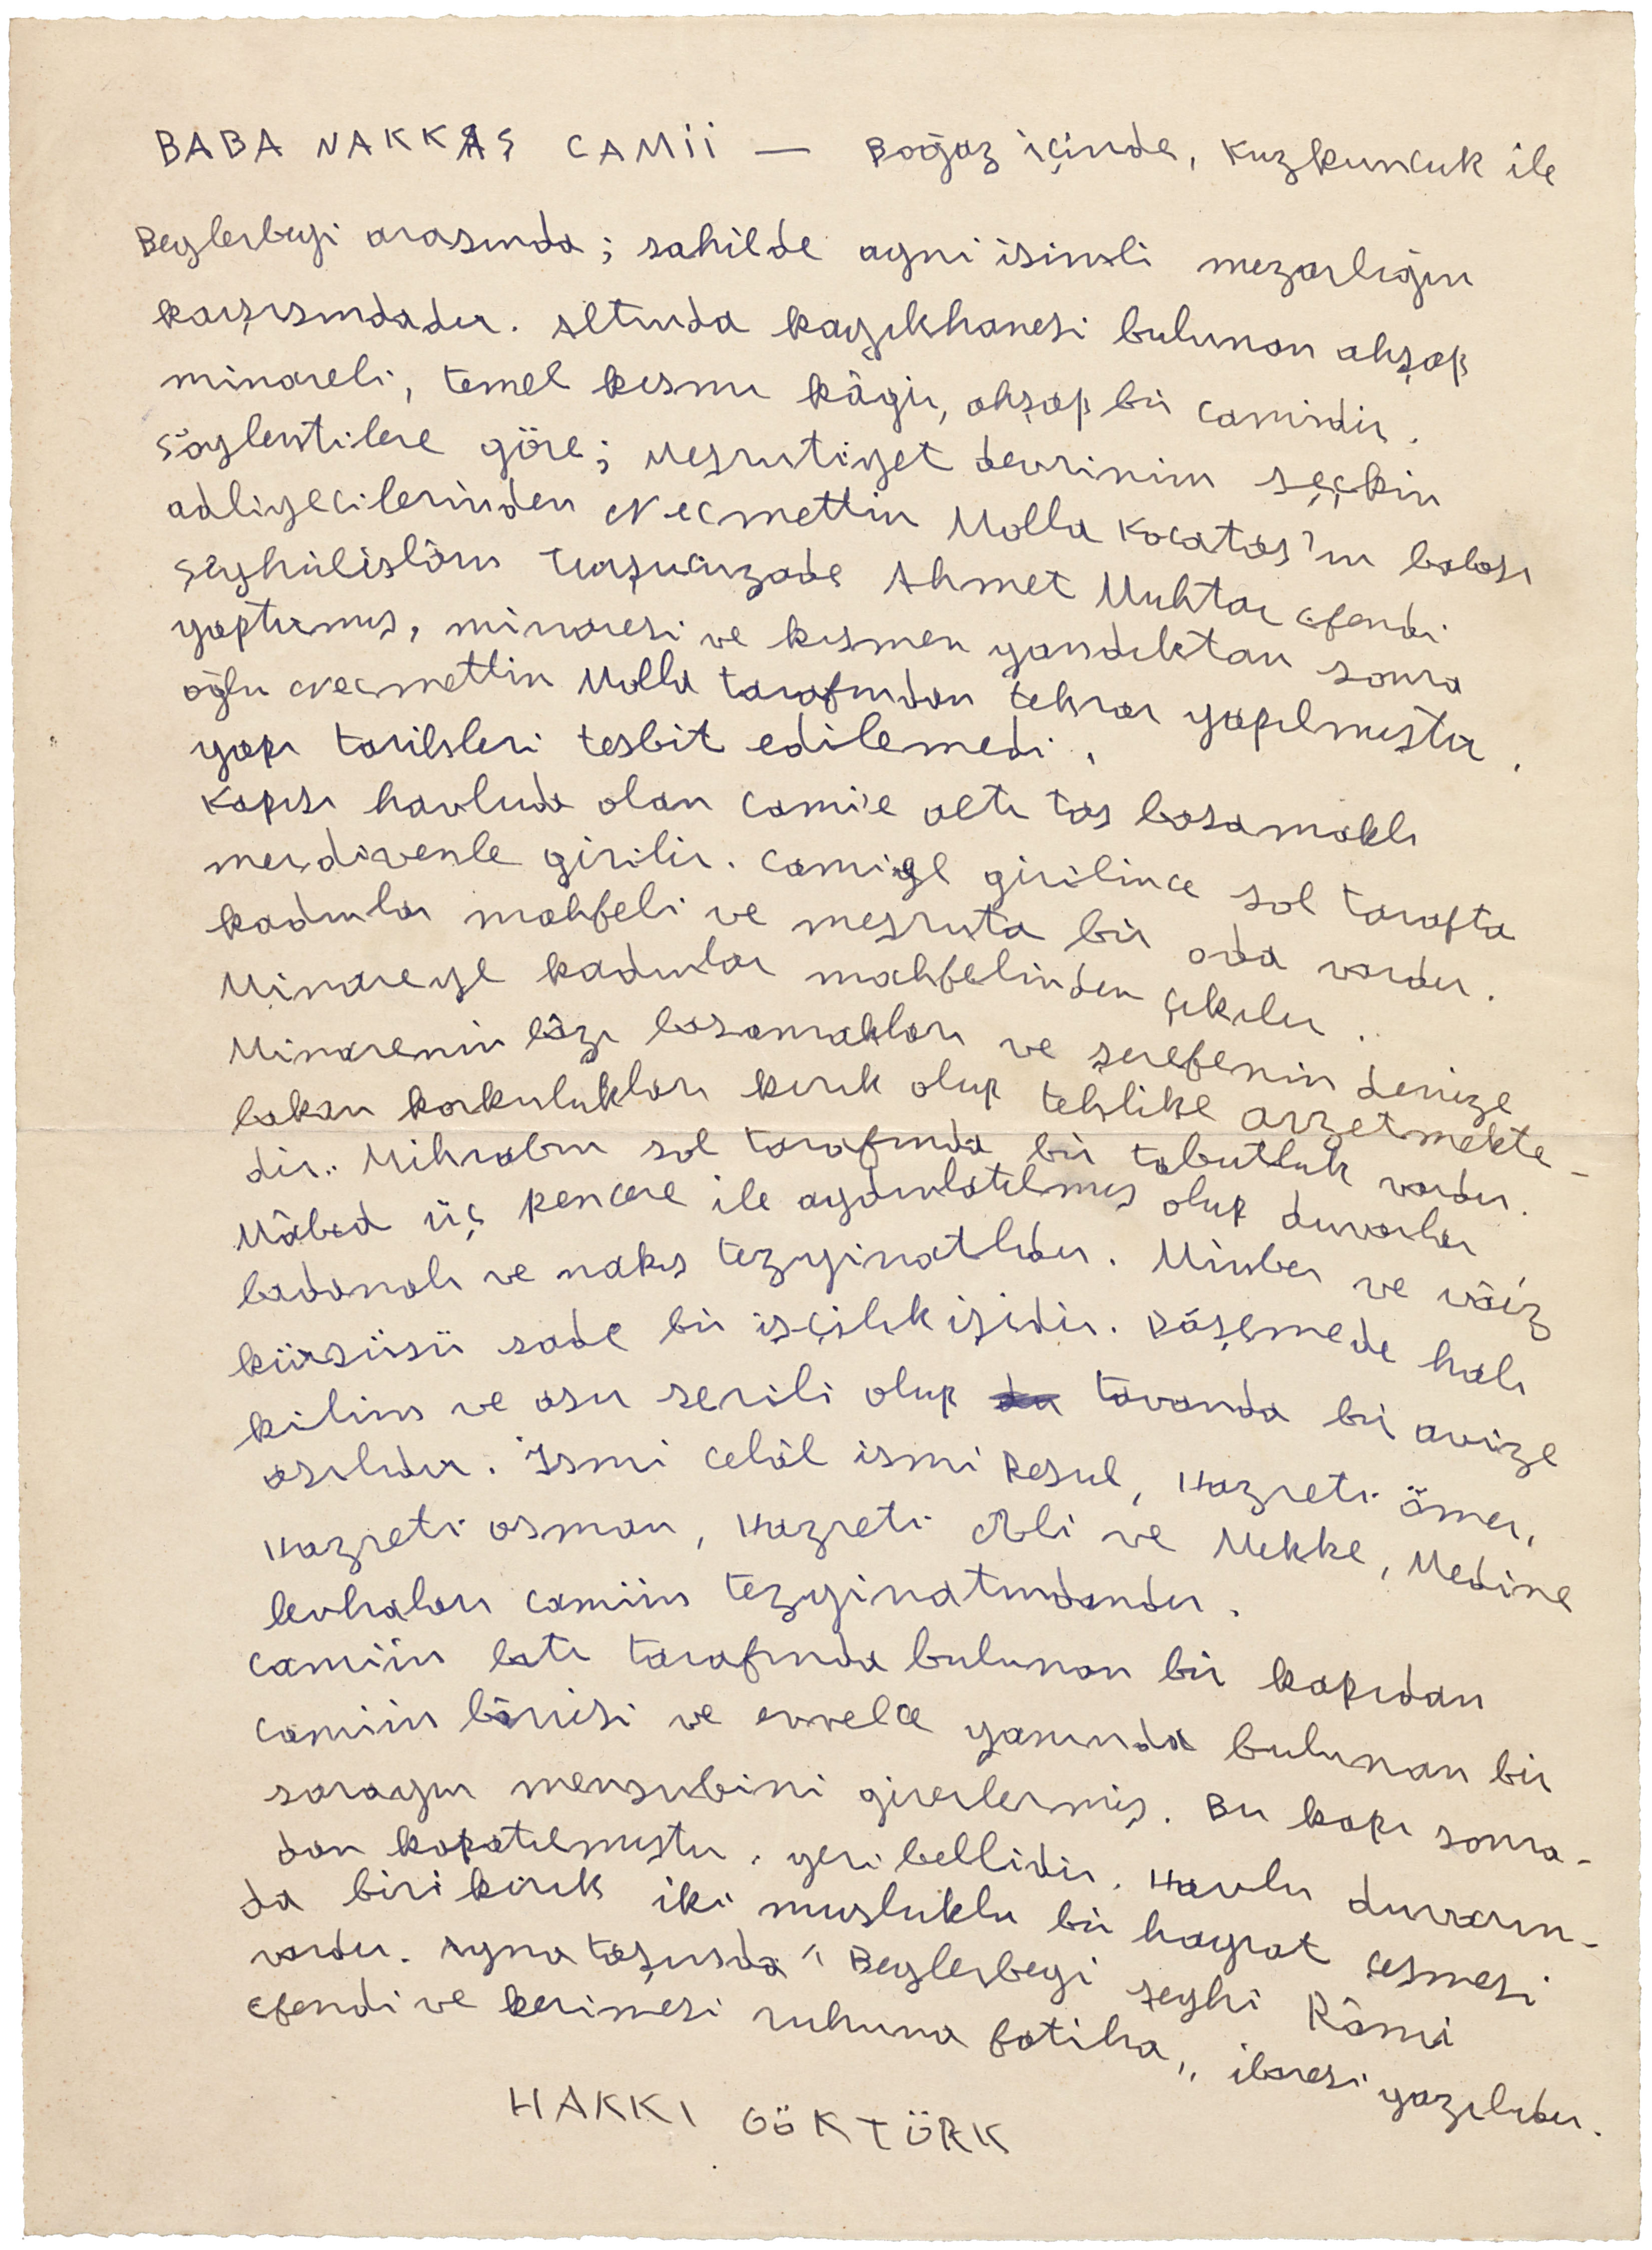 BABA NAKKAŞ CAMii — Boğaz içinde, Kuzkuncuk ile
Beylerbeyi arasında; sahilde ayni isimli mezarlığın
karşısındadır. Altında kayıkhanesi bulunan ahşap
minareli, temel kısmı kâgir, ahşap bir camindir.
Söylentilere göre; Meşrutiyet devrinin seçkin
adliyecilerinden Necmettin Molla Kocataş'ın babası
Şeyhülislâm Turşucuzade Ahmet Muhtar efendi
yaptırmış, minaresi ve kısmen yandıktan sonra
oğlu Necmettin Molla tarafından tekrar yapılmıştır.
yapı tarihleri tesbit edilemedi.
Kapısı havluda olan cami'e altı taş basamaklı
merdivenle girilir. Camiye girilince sol tarafta
kadınlar mahfeli ve meşruta bir oda vardır.
Minareye kadınlar mahfelinden çıkılır.
Minarenin bâzı basamakları ve şerefenin denize
bakan korkulukları kırık olup tehlike arzetmekte-
dir.. Mihrabın sol tarafında bir tabutluk vardır.
Mâbed üç pencere ile aydınlatılmış olup duvarları
badanalı ve nakış tezyinatlıdır. Minber ve vâiz
kürsüsü sade bir işçilik işidir. Döşemede halı
kilim ve asır serili olup tavanda bir avize
asılıdır. İsmi celâl ismi Resul, Hazreti ömer,
Hazreti osman, Hazreti Ali ve Mekke, Medine
levhaları camiin tezyinatındandır.
Camiin batı tarafında bulunan bir kapıdan
camiin bânisi ve evvelce yanında bulunan bir
sarayın mensubini girerlermiş. Bu kapı sonra-
dan kapatılmıştır, yeri bellidir. Havlu duvarın-
da biri kırık iki musluklu bir hayrat çeşmesi
vardır. Ayna taşında "Beylerbeyi şeyhi Râmi
efendi ve kerimesi ruhuna fatiha" ibaresi yazılıdır.
HAKKI GÖKTÜRK